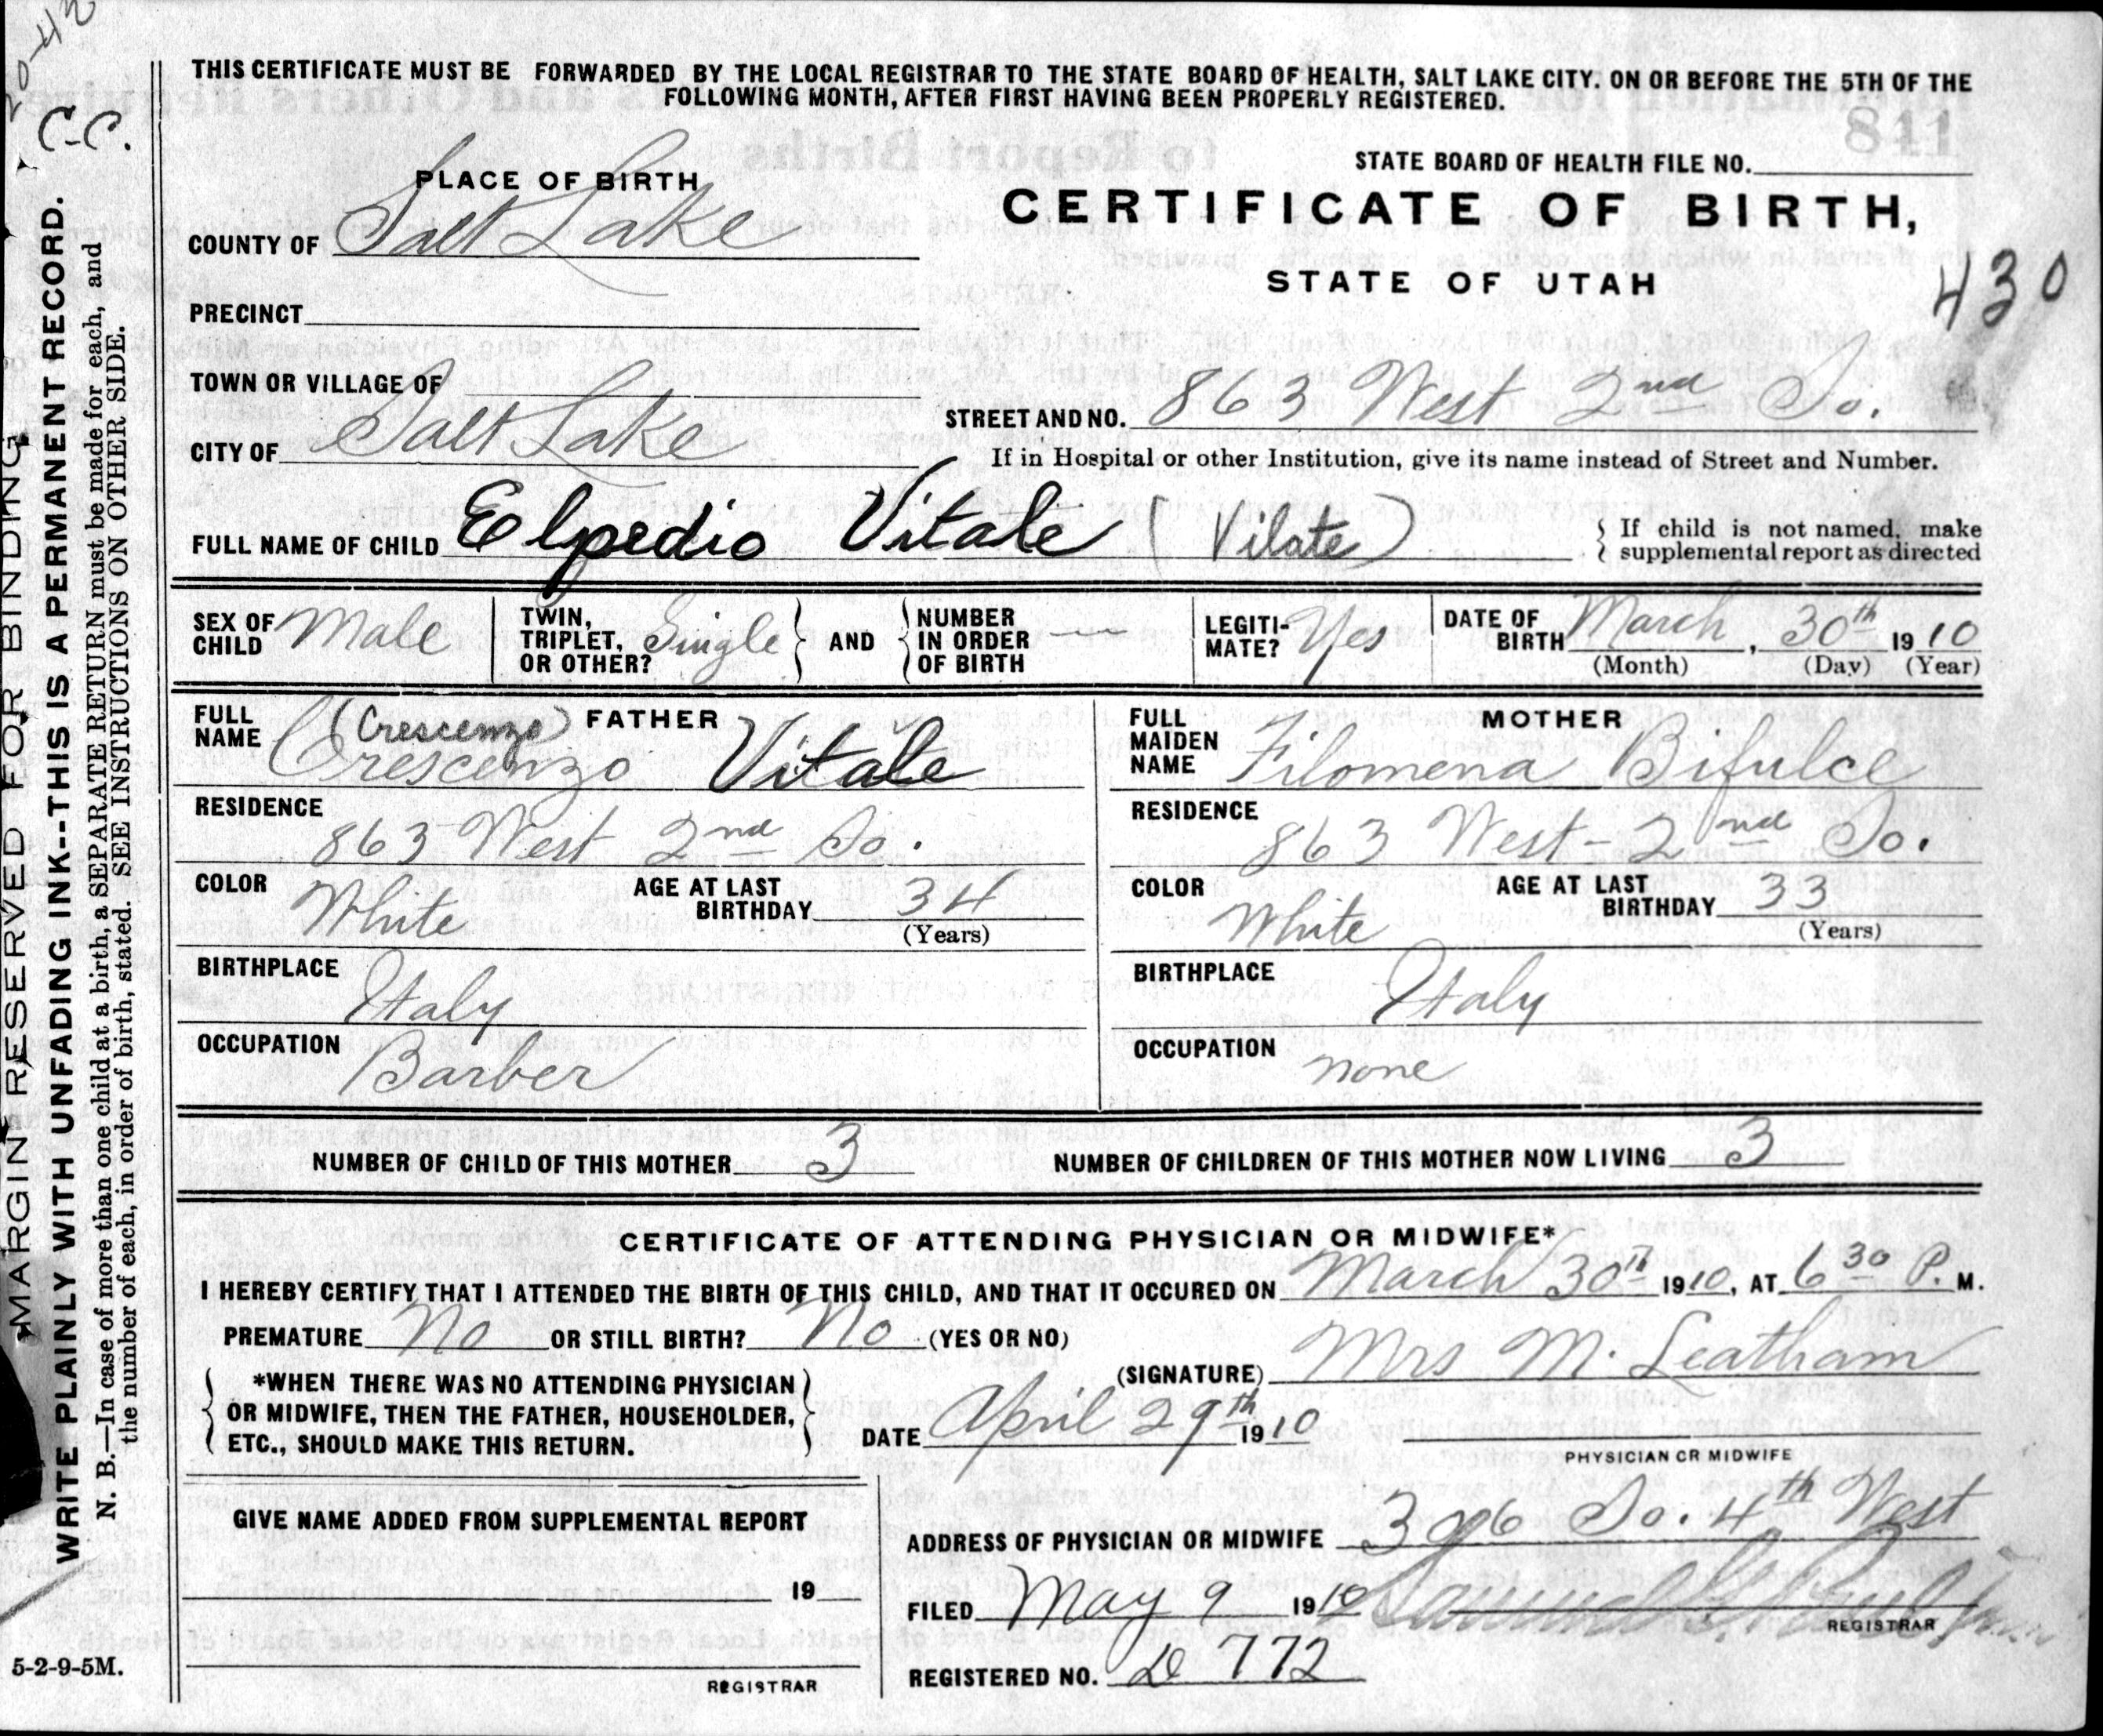 20-42
C-C.
THIS CERTIFICATE MUST BE FORWARDED BY THE LOCAL REGISTRAR TO THE STATE BOARD OF HEALTH, SALT LAKE CITY. ON OR BEFORE THE 5TH OF THE
FOLLOWING MONTH, AFTER FIRST HAVING BEEN PROPERLY REGISTERED.
841
STATE BOARD OF HEALTH FILE NO.
PLACE OF BIRTH
CERTIFICATE OF BIRTH,
COUNTY OF Salt Lake
STATE OF UTAH
430
PRECINCT
TOWN OR VILLAGE OF
STREET AND NO. 863 West 2nd So.
CITY OF Salt Lake
If in Hospital or other Institution, give its name instead of Street and Number.
FULL NAME OF CHILD Elpedio Vitale (Vilate)
{ If child is not named, make
supplemental report as directed
SEX OF CHILD Male
TWIN, TRIPLET, OR OTHER? Single } AND { NUMBER IN ORDER OF BIRTH —
LEGITI-MATE? Yes
DATE OF BIRTH March, 30th 1910
(Month) (Day) (Year)
FATHER
FULL NAME (Crescenzo)
Crescenzo Vitale
MOTHER
FULL MAIDEN NAME Filomena Bifulce
RESIDENCE 863 West 2nd So.
RESIDENCE 863 West - 2nd So.
COLOR White AGE AT LAST BIRTHDAY 34
(Years)
COLOR White AGE AT LAST BIRTHDAY 33
(Years)
BIRTHPLACE Italy
BIRTHPLACE Italy
OCCUPATION Barber
OCCUPATION none
NUMBER OF CHILD OF THIS MOTHER 3 NUMBER OF CHILDREN OF THIS MOTHER NOW LIVING 3
CERTIFICATE OF ATTENDING PHYSICIAN OR MIDWIFE*
I HEREBY CERTIFY THAT I ATTENDED THE BIRTH OF THIS CHILD, AND THAT IT OCCURED ON March 30th 1910, AT 6 30 P. M.
PREMATURE No OR STILL BIRTH? No (YES OR NO)
(SIGNATURE) Mrs M. Leatham
{ *WHEN THERE WAS NO ATTENDING PHYSICIAN
OR MIDWIFE, THEN THE FATHER, HOUSEHOLDER,
ETC., SHOULD MAKE THIS RETURN. }
DATE April 29th 1910
PHYSICIAN OR MIDWIFE
GIVE NAME ADDED FROM SUPPLEMENTAL REPORT
19
REGISTRAR
ADDRESS OF PHYSICIAN OR MIDWIFE So. 4th West
FILED May 9 1910
REGISTRAR
REGISTERED NO. 772
MARGIN RESERVED FOR BINDING
WRITE PLAINLY WITH UNFADING INK--THIS IS A PERMANENT RECORD.
N. B.—In case of more than one child at a birth, a SEPARATE RETURN must be made for each, and
the number of each, in order of birth, stated. SEE INSTRUCTIONS ON OTHER SIDE.
5-2-9-5M.